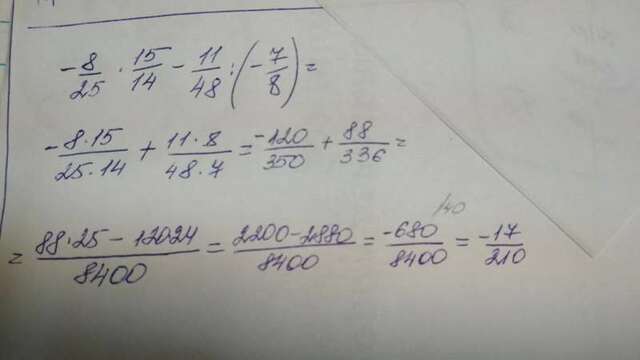 -8/25 · 15/14 - 11/48 : (-7/8) =
-8·15/25·14 + 11·8/48·7 = -120/350 + 88/336 =
= 88·25 - 120·24/8400 = 2200-2880/8400 = -680/8400 = -17/210
/40